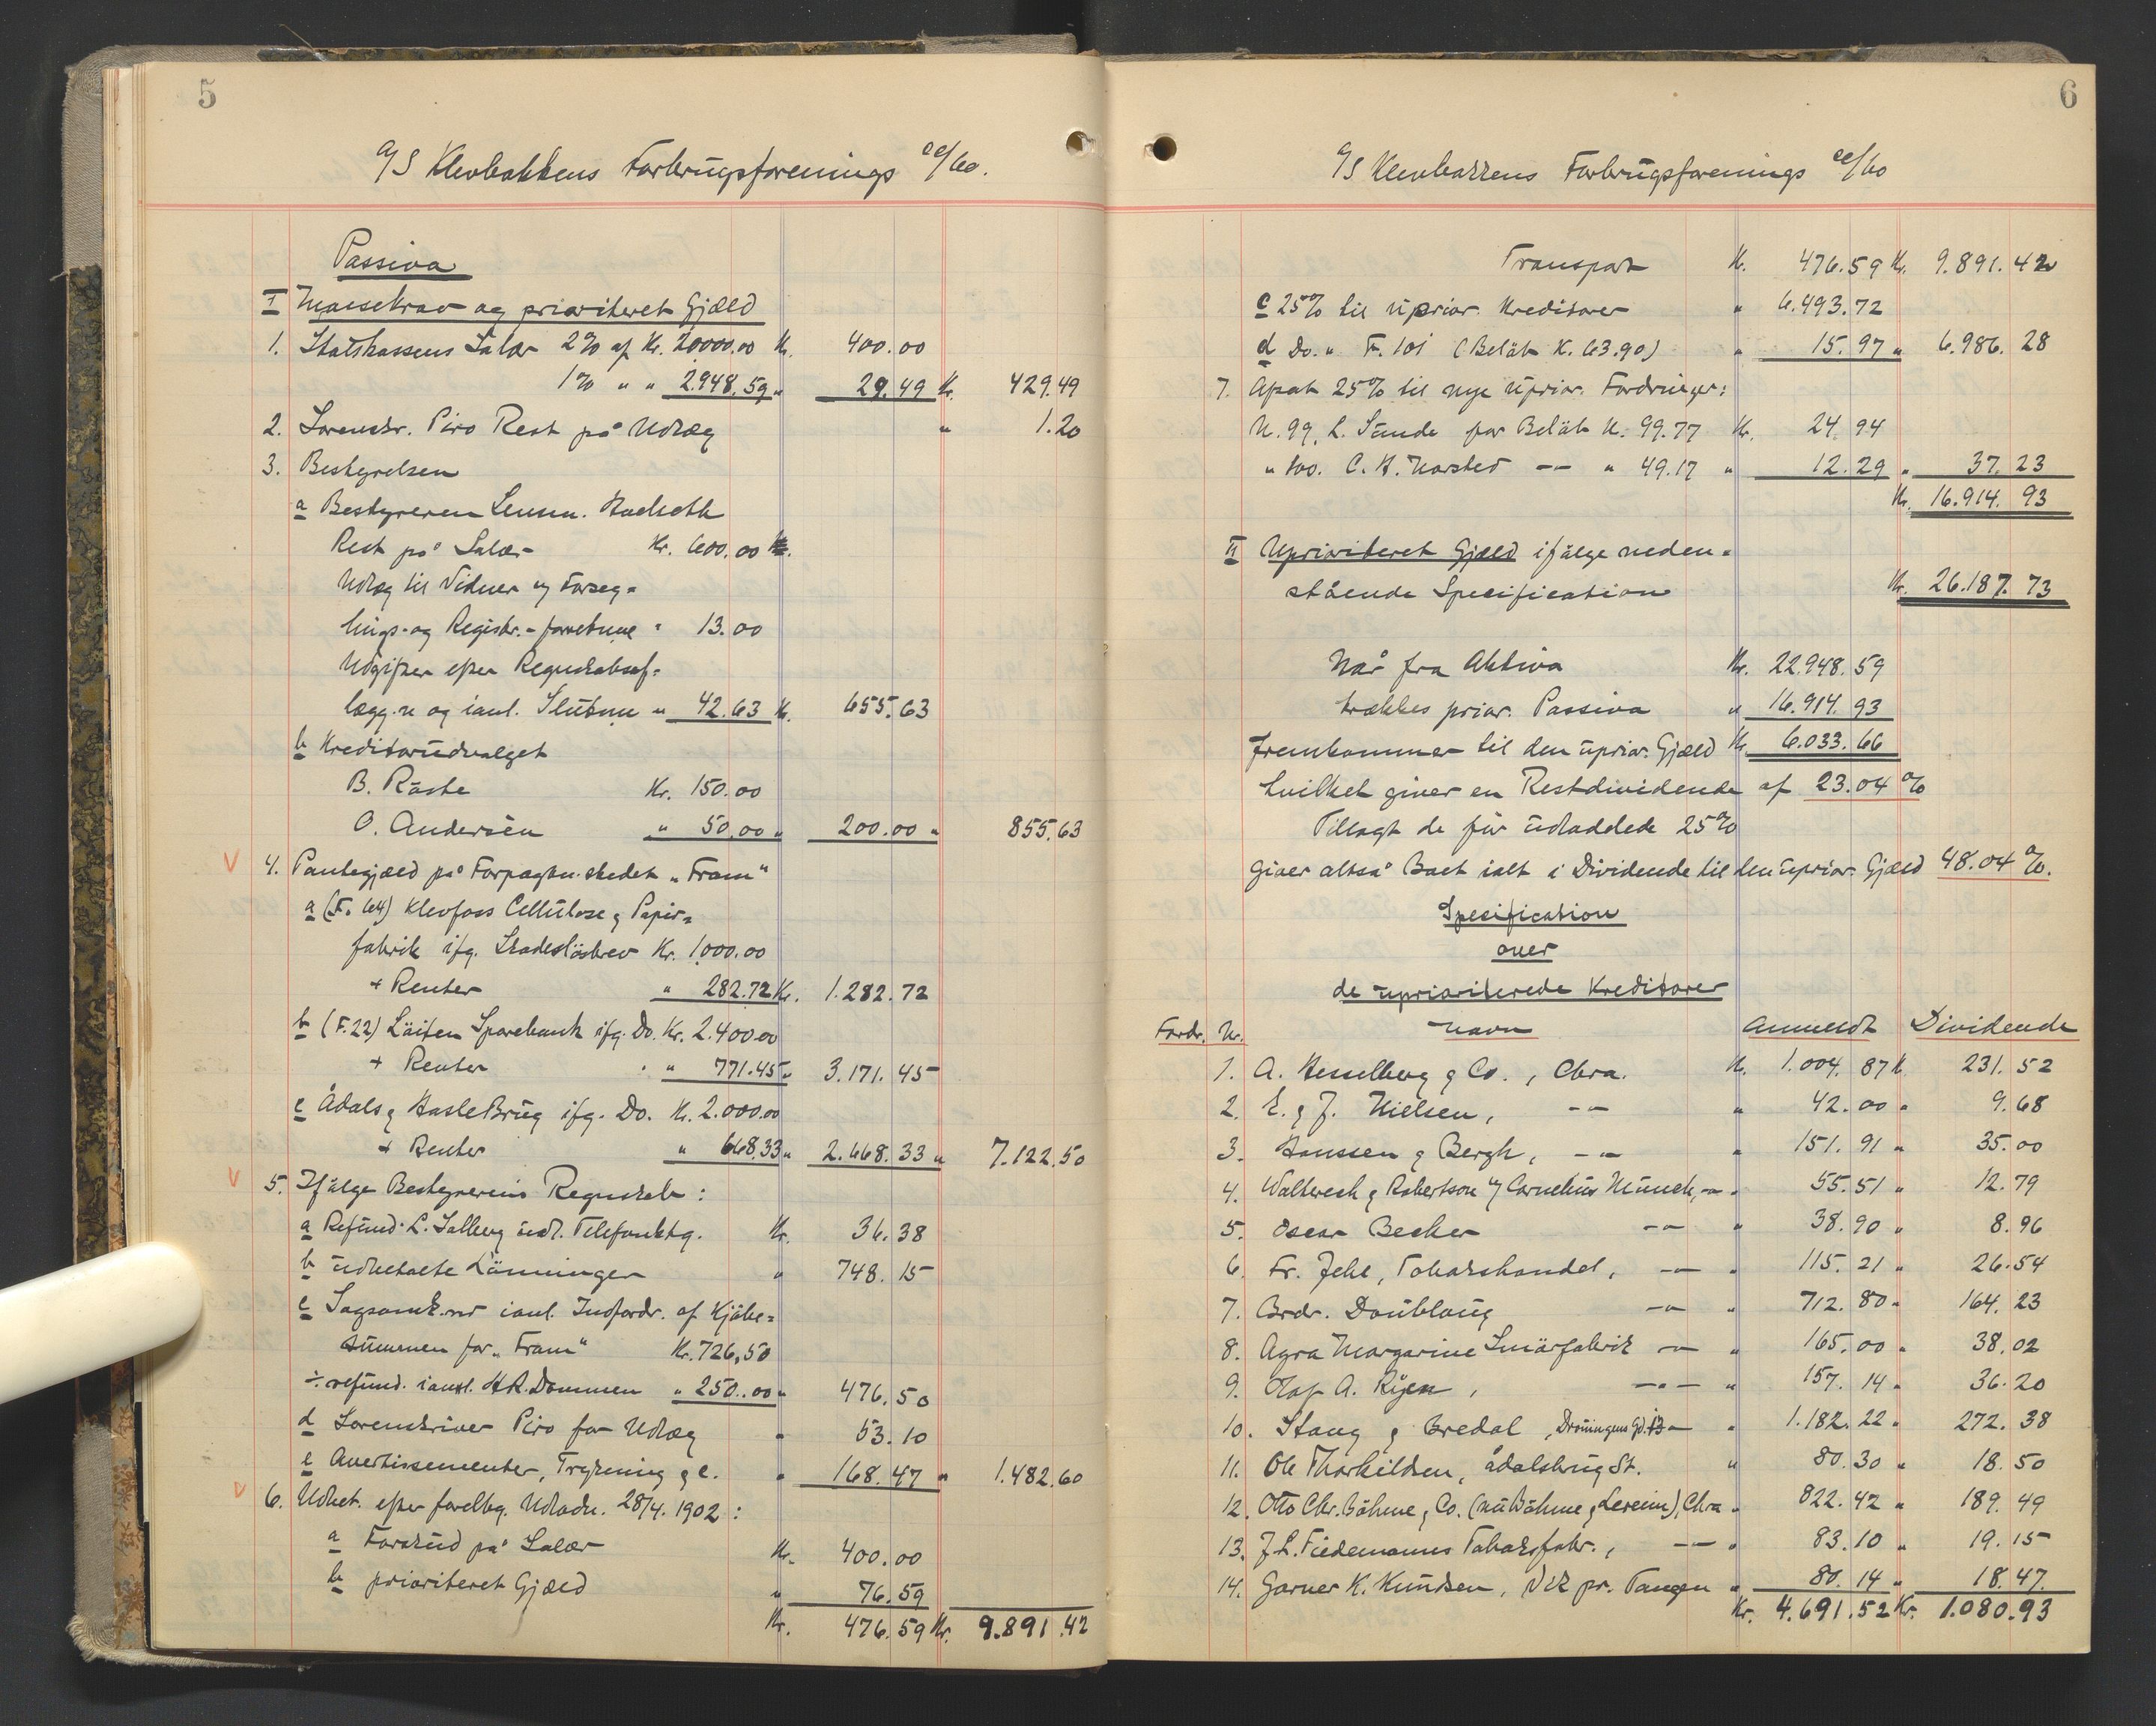 5
A/S Klevbakkens Forbrugsforenings cc/bo.
Passiva
I Massekrav og prioriteret Gjæld
1. Statskassens Salær 2% af Kr. 20.000.00 Kr. 400.00
1% " " 2.948.59 " 29.49 Kr. 429.49
2. Sorenskr. Piro Rest på Udlæg " 1.20
3. Bestyrelsen
a Bestyreren Lensm.
Rest på Salær Kr. 600.00
Udlæg til Vidner og Forseg=
lings- og Registr.- forretnne " 13.00
Udgifter efter Regnskabsaf=
lægg.n og ianl. Slutnne " 42.63 Kr. 655.63
b Kreditorudvalget
B. Råste Kr. 150.00
O. Andersen " 50.00 " 200.00 " 855.63
4. Pantegjæld på Forpagtn.stedet "Fram"
a (F. 64) Klevfoss Cellulose & Papir=
fabrik ifg. Skadesløsbrev Kr. 1.000.00
+ Renter " 282.72 Kr. 1.282.72
b (F. 22) Löiten Sparebank ifg. Do. Kr. 2.400.00
+ Renter " 771.45 " 3.171.45
c Ådals & Hasle Brug ifg. Do. Kr. 2.000.00
+ Renter " 668.33 " 2.668.33 " 7.122.50
5. Ifølge Bestyrerens Regnskab:
a Refund. L. Salberg udl. Telefonktg. Kr. 36.38
b udbetalte Lönninger " 748.15
c Sagsomk.ner ianl. Indfordr. af Kjöbe=
summen for "Fram" Kr. 726,50
÷ refund. ianl. HR.Dommen " 250.00 " 476.50
d Sorenskriver Piro for Udlæg " 53.10
e Avertissementer, Trykning & c. " 168.47 " 1.482.60
6. Udbet. efter forelbg. Udlodn. 28/4. 1902:
a Forskud på Salær Kr. 400.00
b prioriteret Gjæld " 76.59
Kr. 476.59 Kr. 9.891.42
6
A/S Klevbakkens Forbrugsforenings cc/bo
Transport Kr. 476.59 Kr. 9.891.42
c 25% til uprior. Kreditorer " 6.493.72
d Do. " F. 101 (Beløb K. 63.90) " 15.97 " 6.986.28
7. Afsat 25% til nye uprior. Fordringer:
N. 99, L. Sunde for Beløb K. 99.77 Kr. 24.94
" 100. C. H. Norsted -"- " 49.17 " 12.29 " 37.23
Kr. 16.914.93
II Uprioriteret Gjæld ifølge neden=
stående Specification Kr. 26.187.73
Når fra Aktiva Kr. 22.948.59
trækkes prior. Passiva " 16.914.93
fremkommer til den uprior. Gjæld Kr. 6.033.66
hvilket giver en Restdividende af 23.04 %
Tillagt de før udloddede 25%
giver altså Boet ialt i Dividende til den uprior. Gjæld 48.04 %.
Specification
over
de uprioriterede Kreditorer
Fordr. Nr. Navn Anmeldt Dividende
1. A. Hesselberg & Co., Chra. Kr. 1.004.87 K. 231.52
2. E. & J. Nielsen, -"- " 42.00 " 9.68
3. Hanssen & Bergh, -"- " 151.91 " 35.00
4. & Robertson v/ Cornelius Münch, -"- " 55.51 " 12.79
5. Oscar Becker -"- " 38.90 " 8.96
6. Fr. Jehl, Tobakshandel, -"- " 115.21 " 26.54
7. Brdr. Doublaug -"- " 712.80 " 164.23
8. Agra Margarine Smörfabrik -"- " 165.00 " 38.02
9. Olaf A. Ryen, -"- " 157.14 " 36.20
10. Stang & Bredal, Dronningens Gd. 13 -"- " 1.182.22 " 272.38
11. Ole Thorkildsen, Ådalsbrug St. " 80.30 " 18.50
12. Otto Chr. Böhme & Co. (nu Böhme & Lereim), Chra " 822.42 " 189.49
13. J. L. Tiedemanns Tobaksfabr., -"- " 83.10 " 19.15
14. Garver K. Knudsen, Vik pr. Tangen " 80.14 " 18.47
Kr. 4.691.52 Kr. 1.080.93